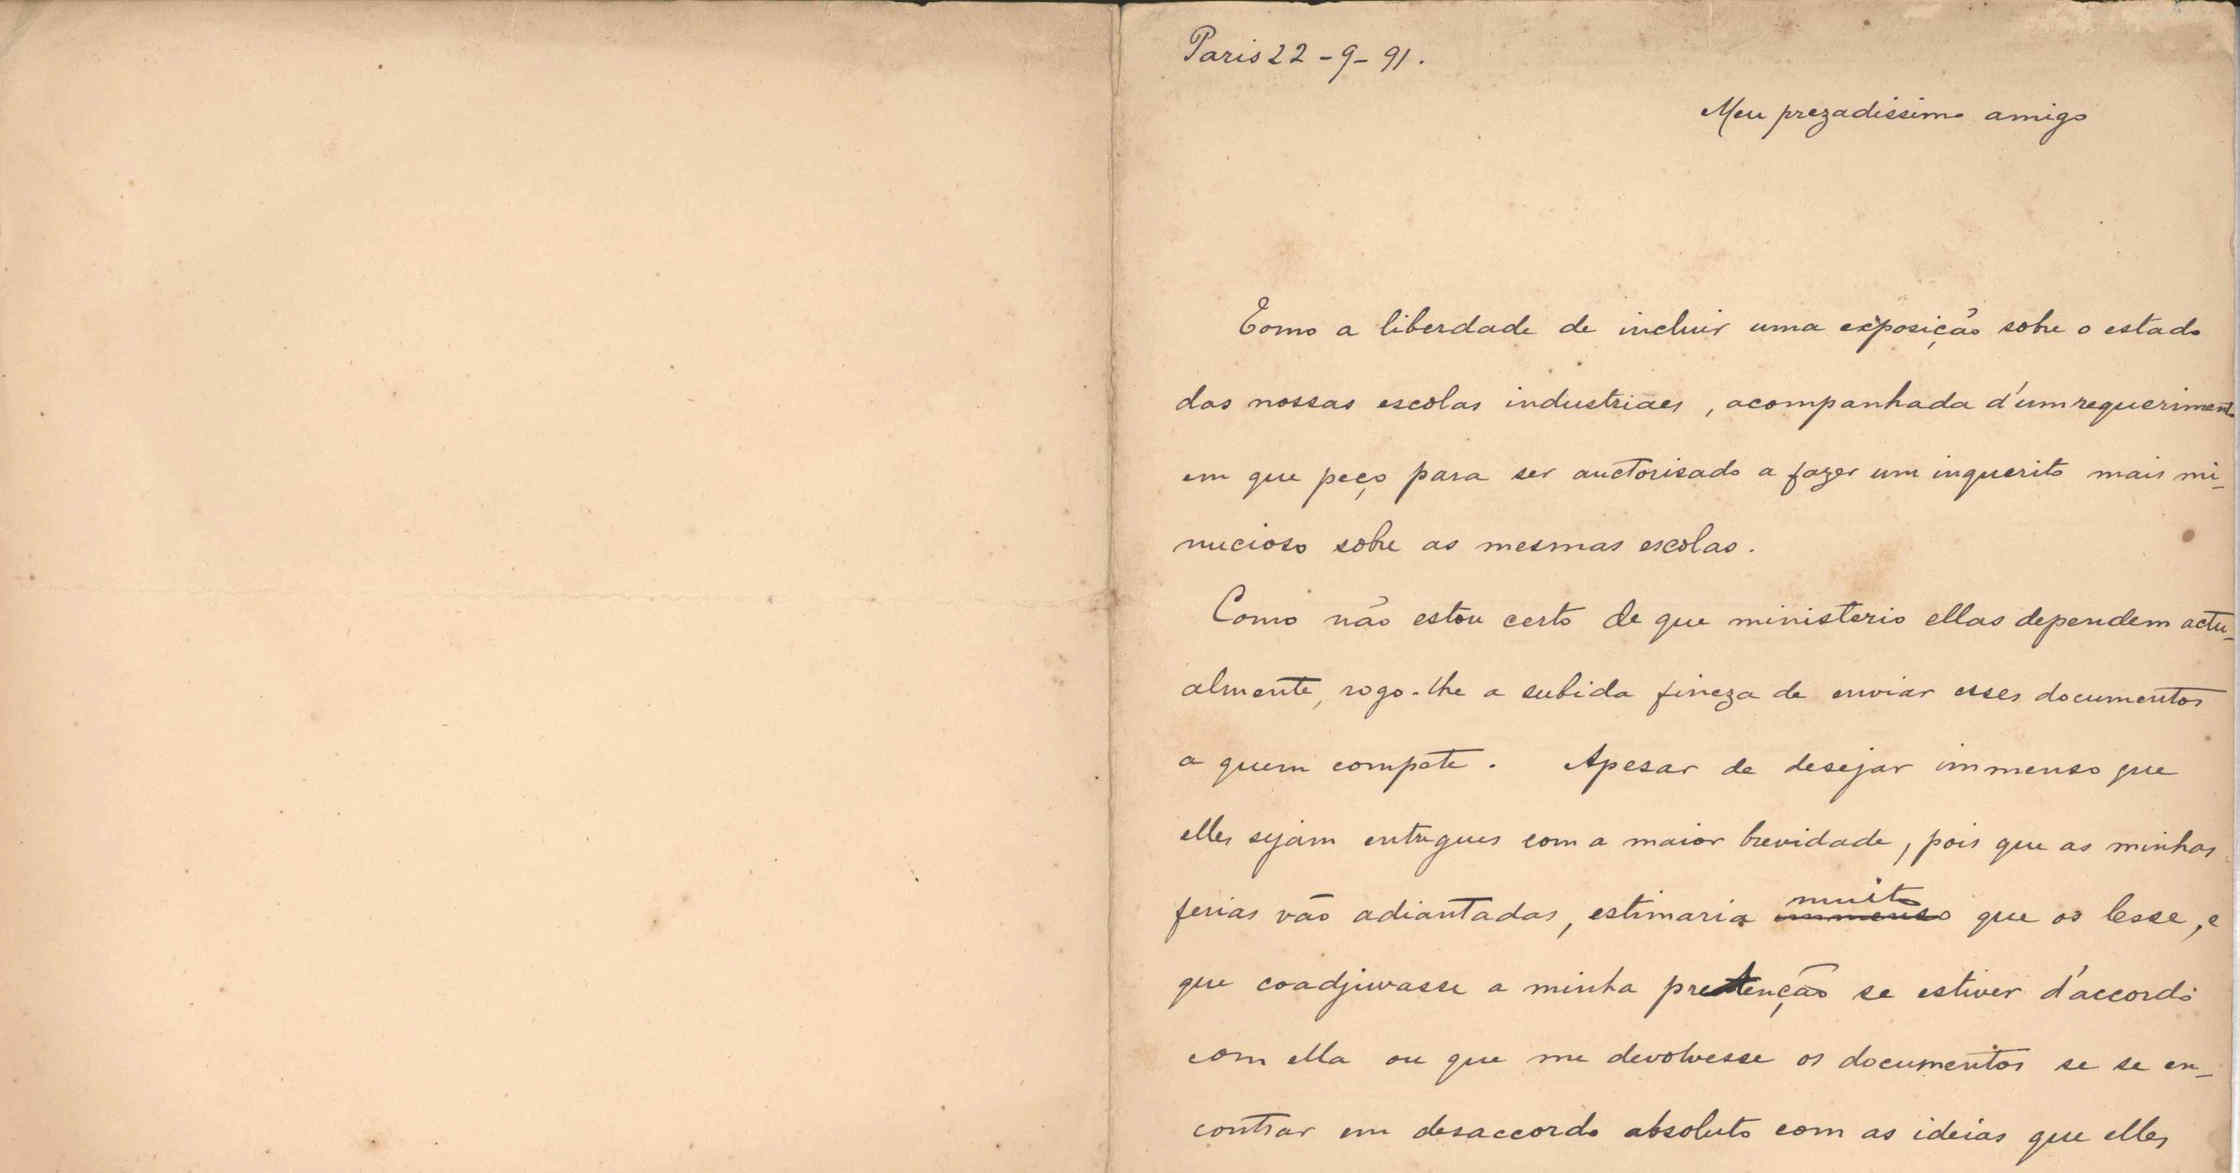 Paris 22-9-91.
Meu prezadissimo amigo
Tomo a liberdade de incluir uma exposição sobre o estado
das nossas escolas industriaes, acompanhada d'um requerimento
em que peço para ser auctorisado a fazer um inquerito mais mi-
nucioso sobre as mesmas escolas.
Como não estou certo de que ministerio ellas dependem actu-
almente, rogo-lhe a subida fineza de enviar esses documentos
a quem compete. Apesar de desejar immenso que
elles sejam entregues com a maior brevidade, pois que as minhas
ferias vão adiantadas, estimaria muito
immenso que os lesse, e
que coadjuvasse a minha pretenção se estiver d'accordo
com ella ou que me devolvesse os documentos se se en-
contrar em desaccordo absoluto com as ideias que elles